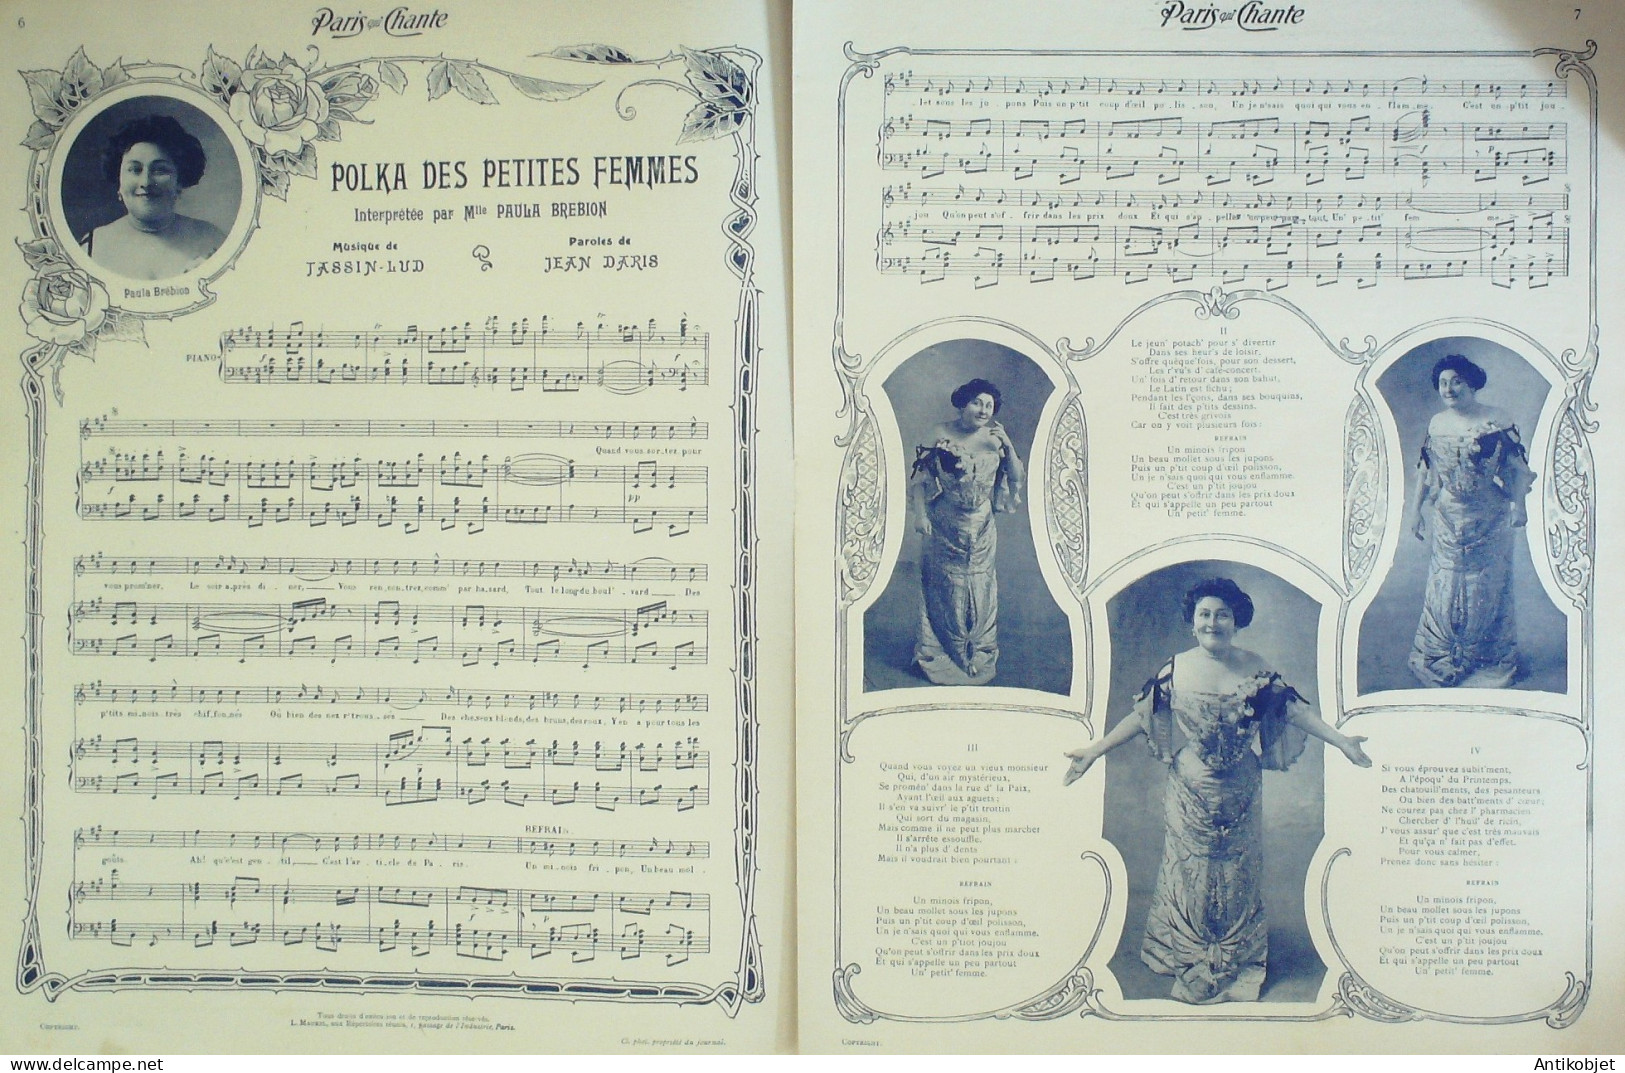 6
Paris qui Chante
POLKA DES PETITES FEMMES
Interprétée par Mlle PAULA BREBION
Musique de
TASSIN-LUD
Paroles de
JEAN DARIS
Paula Brébion
PIANO
Quand vous sor_tez pour
vous prom'ner, Le soir a_près dî_ner,___ Vous ren_con_trez, comm' par ha_sard, Tout le long du boul'_vard___ Des
p'tits mi_nois très chif_fon_nés Où bien des nez r'trous_sés___ Des cheveux blonds, des bruns, des roux, Y en a pour tous les
REFRAIN.
goûts. Ah! qu' c'est gen_til,___ C'est l'ar_ti_cle de Pa_ris. Un mi_nois fri_pon, Un beau mol_
Tous droits d'exécution et de reproduction réservés.
L. MAUREL, aux Répertoires réunis, 1, passage de l'Industrie, Paris.
COPYRIGHT.
Cl. phot. propriété du journal.
Paris qui Chante
7
_let sous les ju_pons Puis un p'tit coup d'œil po_lis_son, Un je n'sais quoi qui vous en_flam_me. C'est un p'tit jou_
jou Qu'on peut s'of_frir dans les prix doux Et qui s'ap_pelle un peu par_tout, Un' pe_tit' fem_me.
II
Le jeun' potach' pour s' divertir
Dans ses heur's de loisir,
S'offre quéque fois, pour son dessert,
Les r'vu's d' café-concert.
Un' fois d' retour dans son bahut,
Le Latin est fichu;
Pendant les l'çons, dans ses bouquins,
Il fait des p'tits dessins.
C'est très grivois
Car on y voit plusieurs fois:
REFRAIN
Un minois fripon
Un beau mollet sous les jupons
Puis un p'tit coup d'œil polisson,
Un je n'sais quoi qui vous enflamme.
C'est un p'tit joujou
Qu'on peut s'offrir dans les prix doux
Et qui s'appelle un peu partout
Un' petit' femme.
III
Quand vous voyez un vieux monsieur
Qui, d'un air mystérieux,
Se promèn' dans la rue d' la Paix,
Ayant l'œil aux aguets;
Il s'en va suivr' le p'tit trottin
Qui sort du magasin,
Mais comme il ne peut plus marcher
Il s'arrête essoufflé.
Il n'a plus d' dents
Mais il voudrait bien pourtant :
REFRAIN
Un minois fripon,
Un beau mollet sous les jupons
Puis un p'tit coup d'œil polisson,
Un je n'sais quoi qui vous enflamme.
C'est un p'tiot joujou
Qu'on peut s'offrir dans les prix doux
Et qui s'appelle un peu partout
Un' petit' femme.
IV
Si vous éprouvez subit'ment,
A l'époqu' du Printemps,
Des chatouill'ments, des pesanteurs
Ou bien des batt'ments d' cœur;
Ne courez pas chez l' pharmacien
Chercher d' l'huil' de ricin,
J' vous assur' que c'est très mauvais
Et qu'ça n' fait pas d'effet.
Pour vous calmer,
Prenez donc sans hésiter :
REFRAIN
Un minois fripon,
Un beau mollet sous les jupons
Puis un p'tit coup d'œil polisson,
Un je n'sais quoi qui vous enflamme.
C'est un p'tit joujou
Qu'on peut s'offrir dans les prix doux
Et qui s'appelle un peu partout
Un' petit' femme.
COPYRIGHT.
Antikobjet